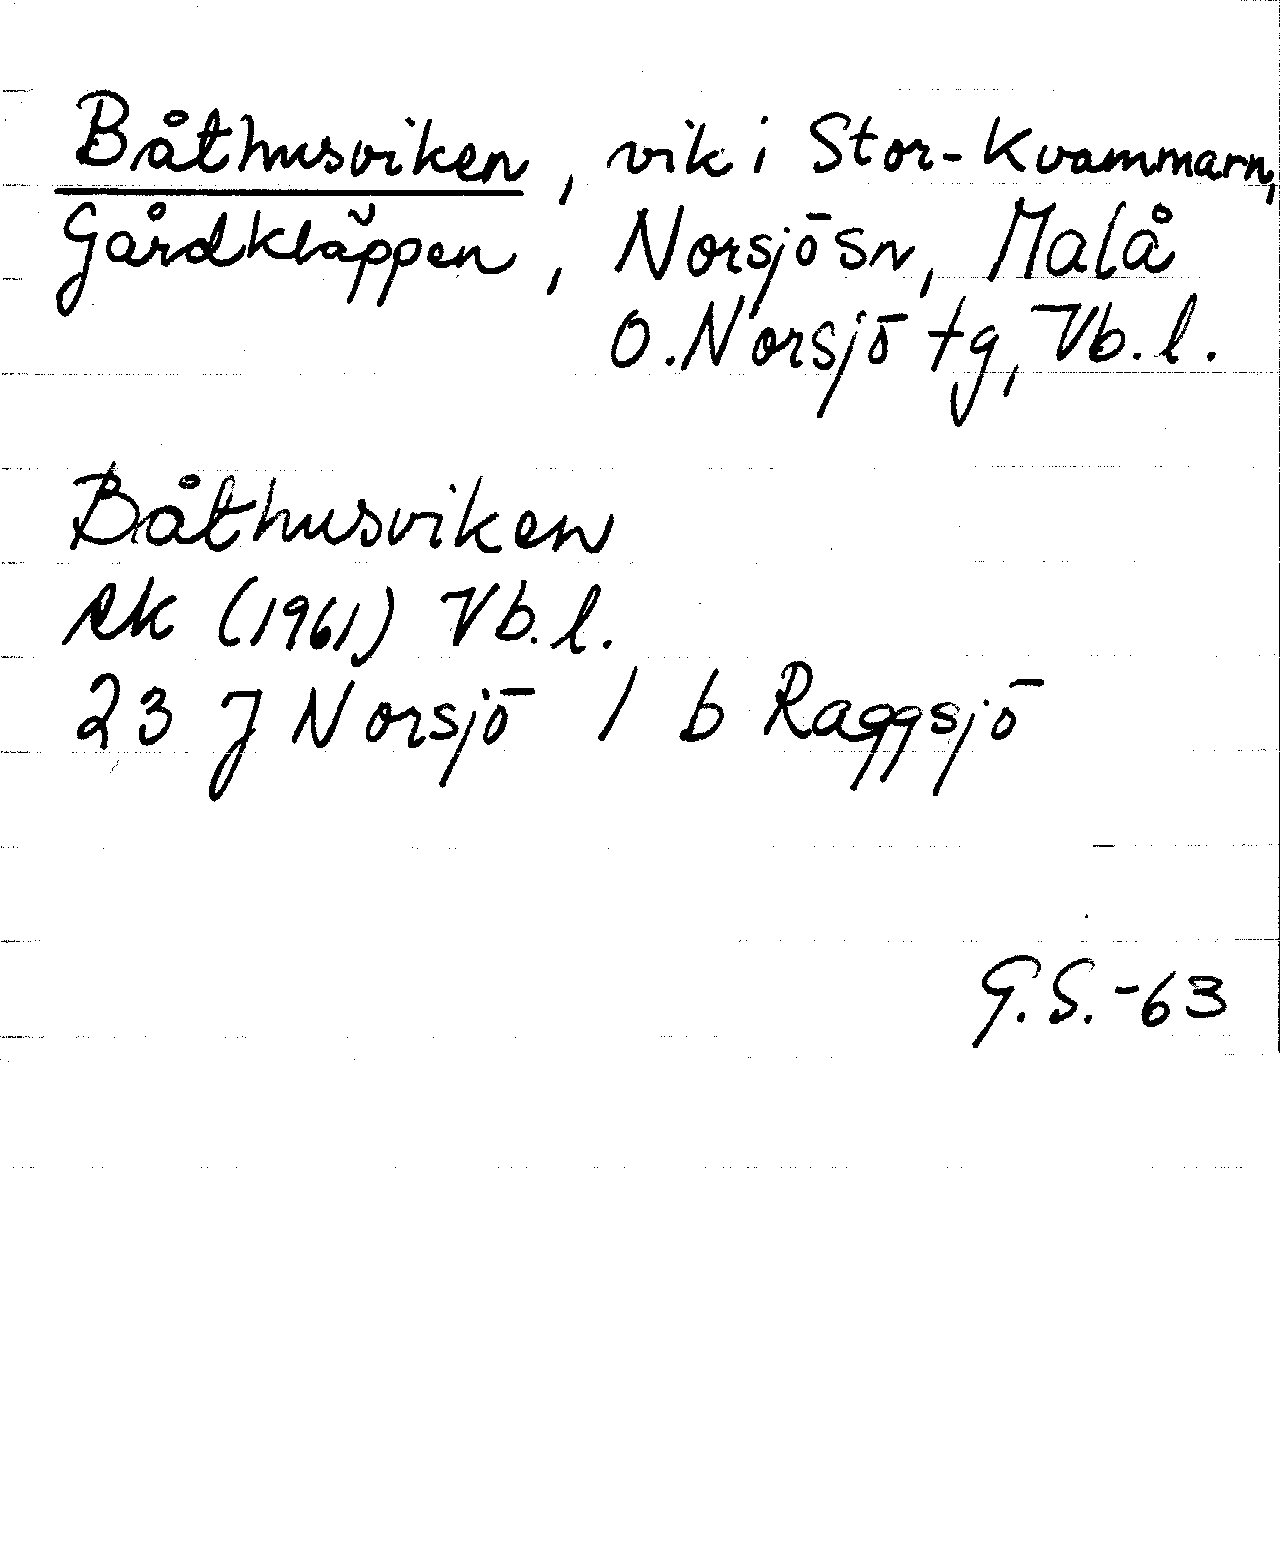 Båthusviken, vik i Stor-Kvammarn,
Gårdkläppen, Norsjö sn, Malå
o. Norsjö tg, Vb. l.
Båthusviken
ek (1961) Vb. l.
23 J Norsjö 1 b Raggsjö
G.S.-63